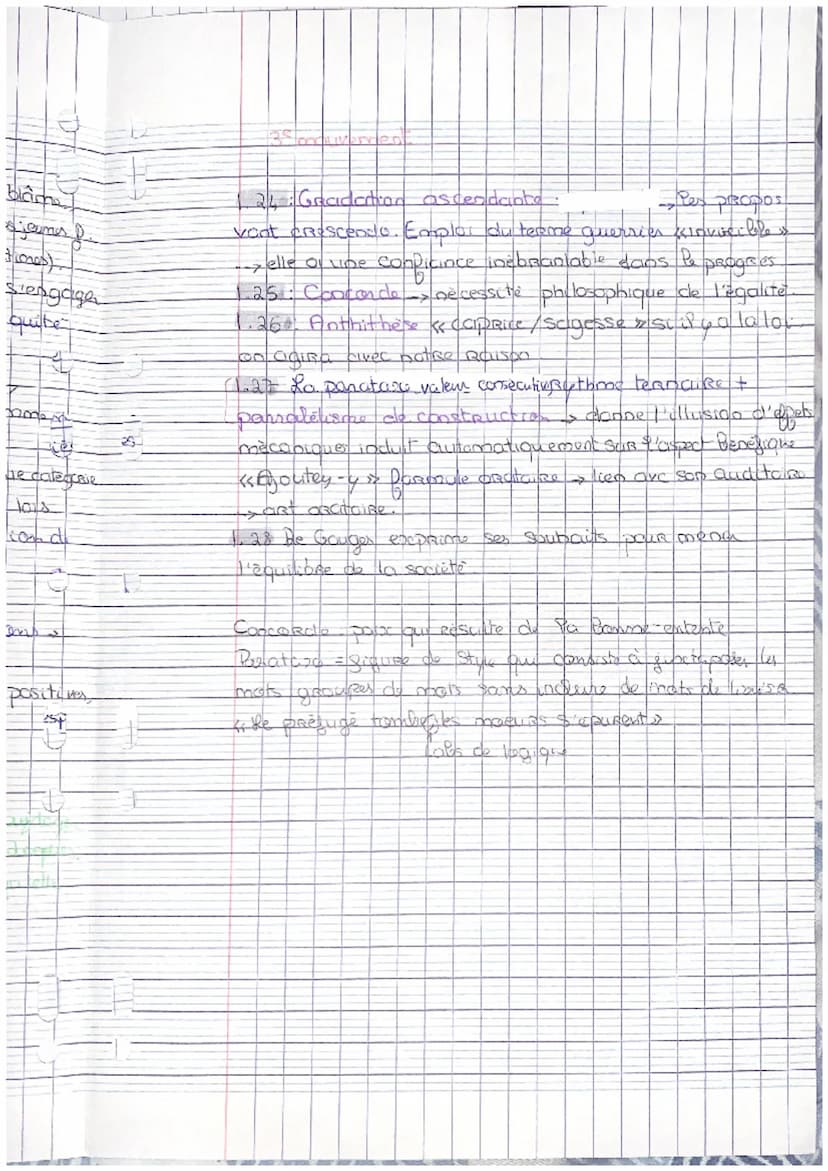 blâme
s jeunes f.
times).
s'engage
quité
ne catégorie
lois
positives,
esp
3e mouvement
l. 24 : Gradation ascendante : → Les propos
vont crescendo. Emploi du terme guerrier « invincible »
--> elle a une confiance inébranlable dans le progrès
l. 25 : Concorde → nécessité philosophique de l'égalité.
l. 26 : Anthithèse « caprice / sagesse » s'il y a la loi
on agira avec notre Raison
l. 27 La parataxe valeur consécutive Rythme ternaire +
parralélisme de construction → donne l'illusion d'effets
mécaniques induit automatiquement sur l'aspect Bénéfique
« Ajoutez-y » formule oratoire → lien avc son auditoire
→ art oratoire.
l. 28 De Gouges exprime ses souhaits pour
l'équilibre de la société
Concorde paix qui résulte de la bonne-entente
Parataxe = figure de style qui consiste à juxtaposer les
mots groupes de mots sans inclure de mots de liaison
« Le préjugé tombe, les moeurs s'épurent »
de logique